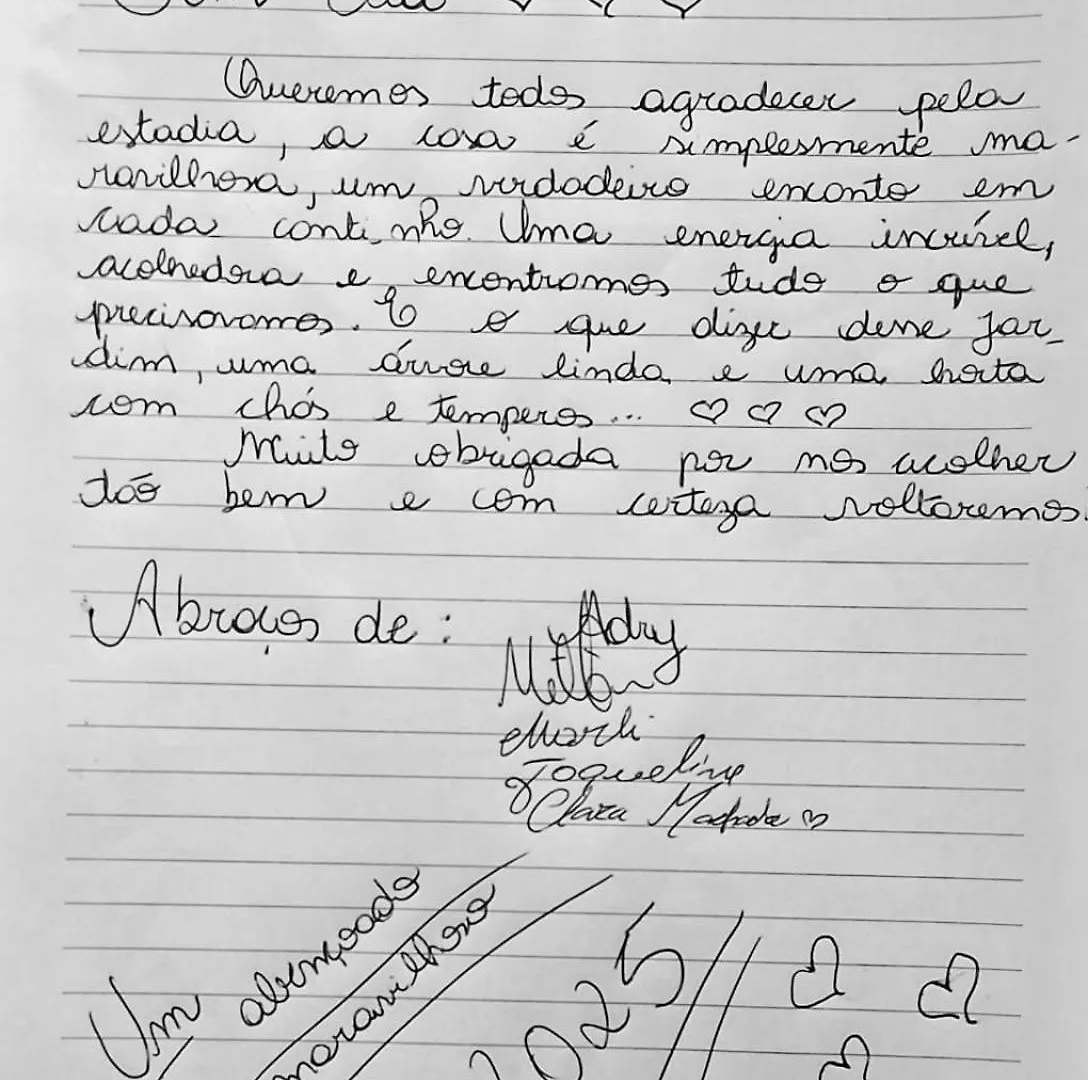 Queremos todos agradecer pela
estadia, a casa é simplesmente ma-
ravilhosa, um verdadeiro encanto em
cada cantinho. Uma energia incrível,
acolhedora e encontramos tudo o que
precisavamos. E o que dizer desse jar-
dim, uma árvore linda e uma horta
com chás e temperos... ♡ ♡ ♡
Muito obrigada por nos acolher
tão bem e com certeza voltaremos.
Abraços de: Adry
Marli
Jaqueline
Clara Machado ♡
Um abençoado
maravilhoso
2025